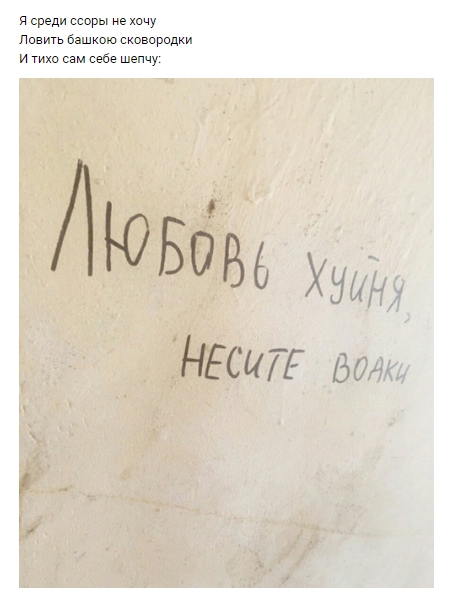 Я среди ссоры не хочу
Ловить башкою сковородки
И тихо сам себе шепчу:
ЛЮБОВЬ ХУЙНЯ,
НЕСИТЕ ВОДКИ